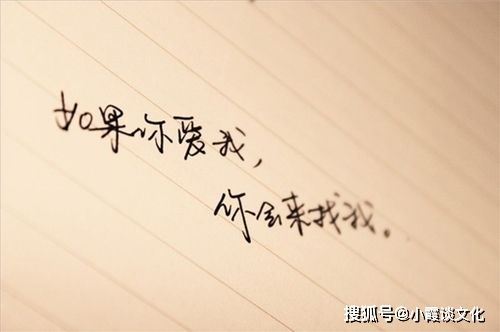 如果你爱我，
你会来找我。
搜狐号@小霞谈文化